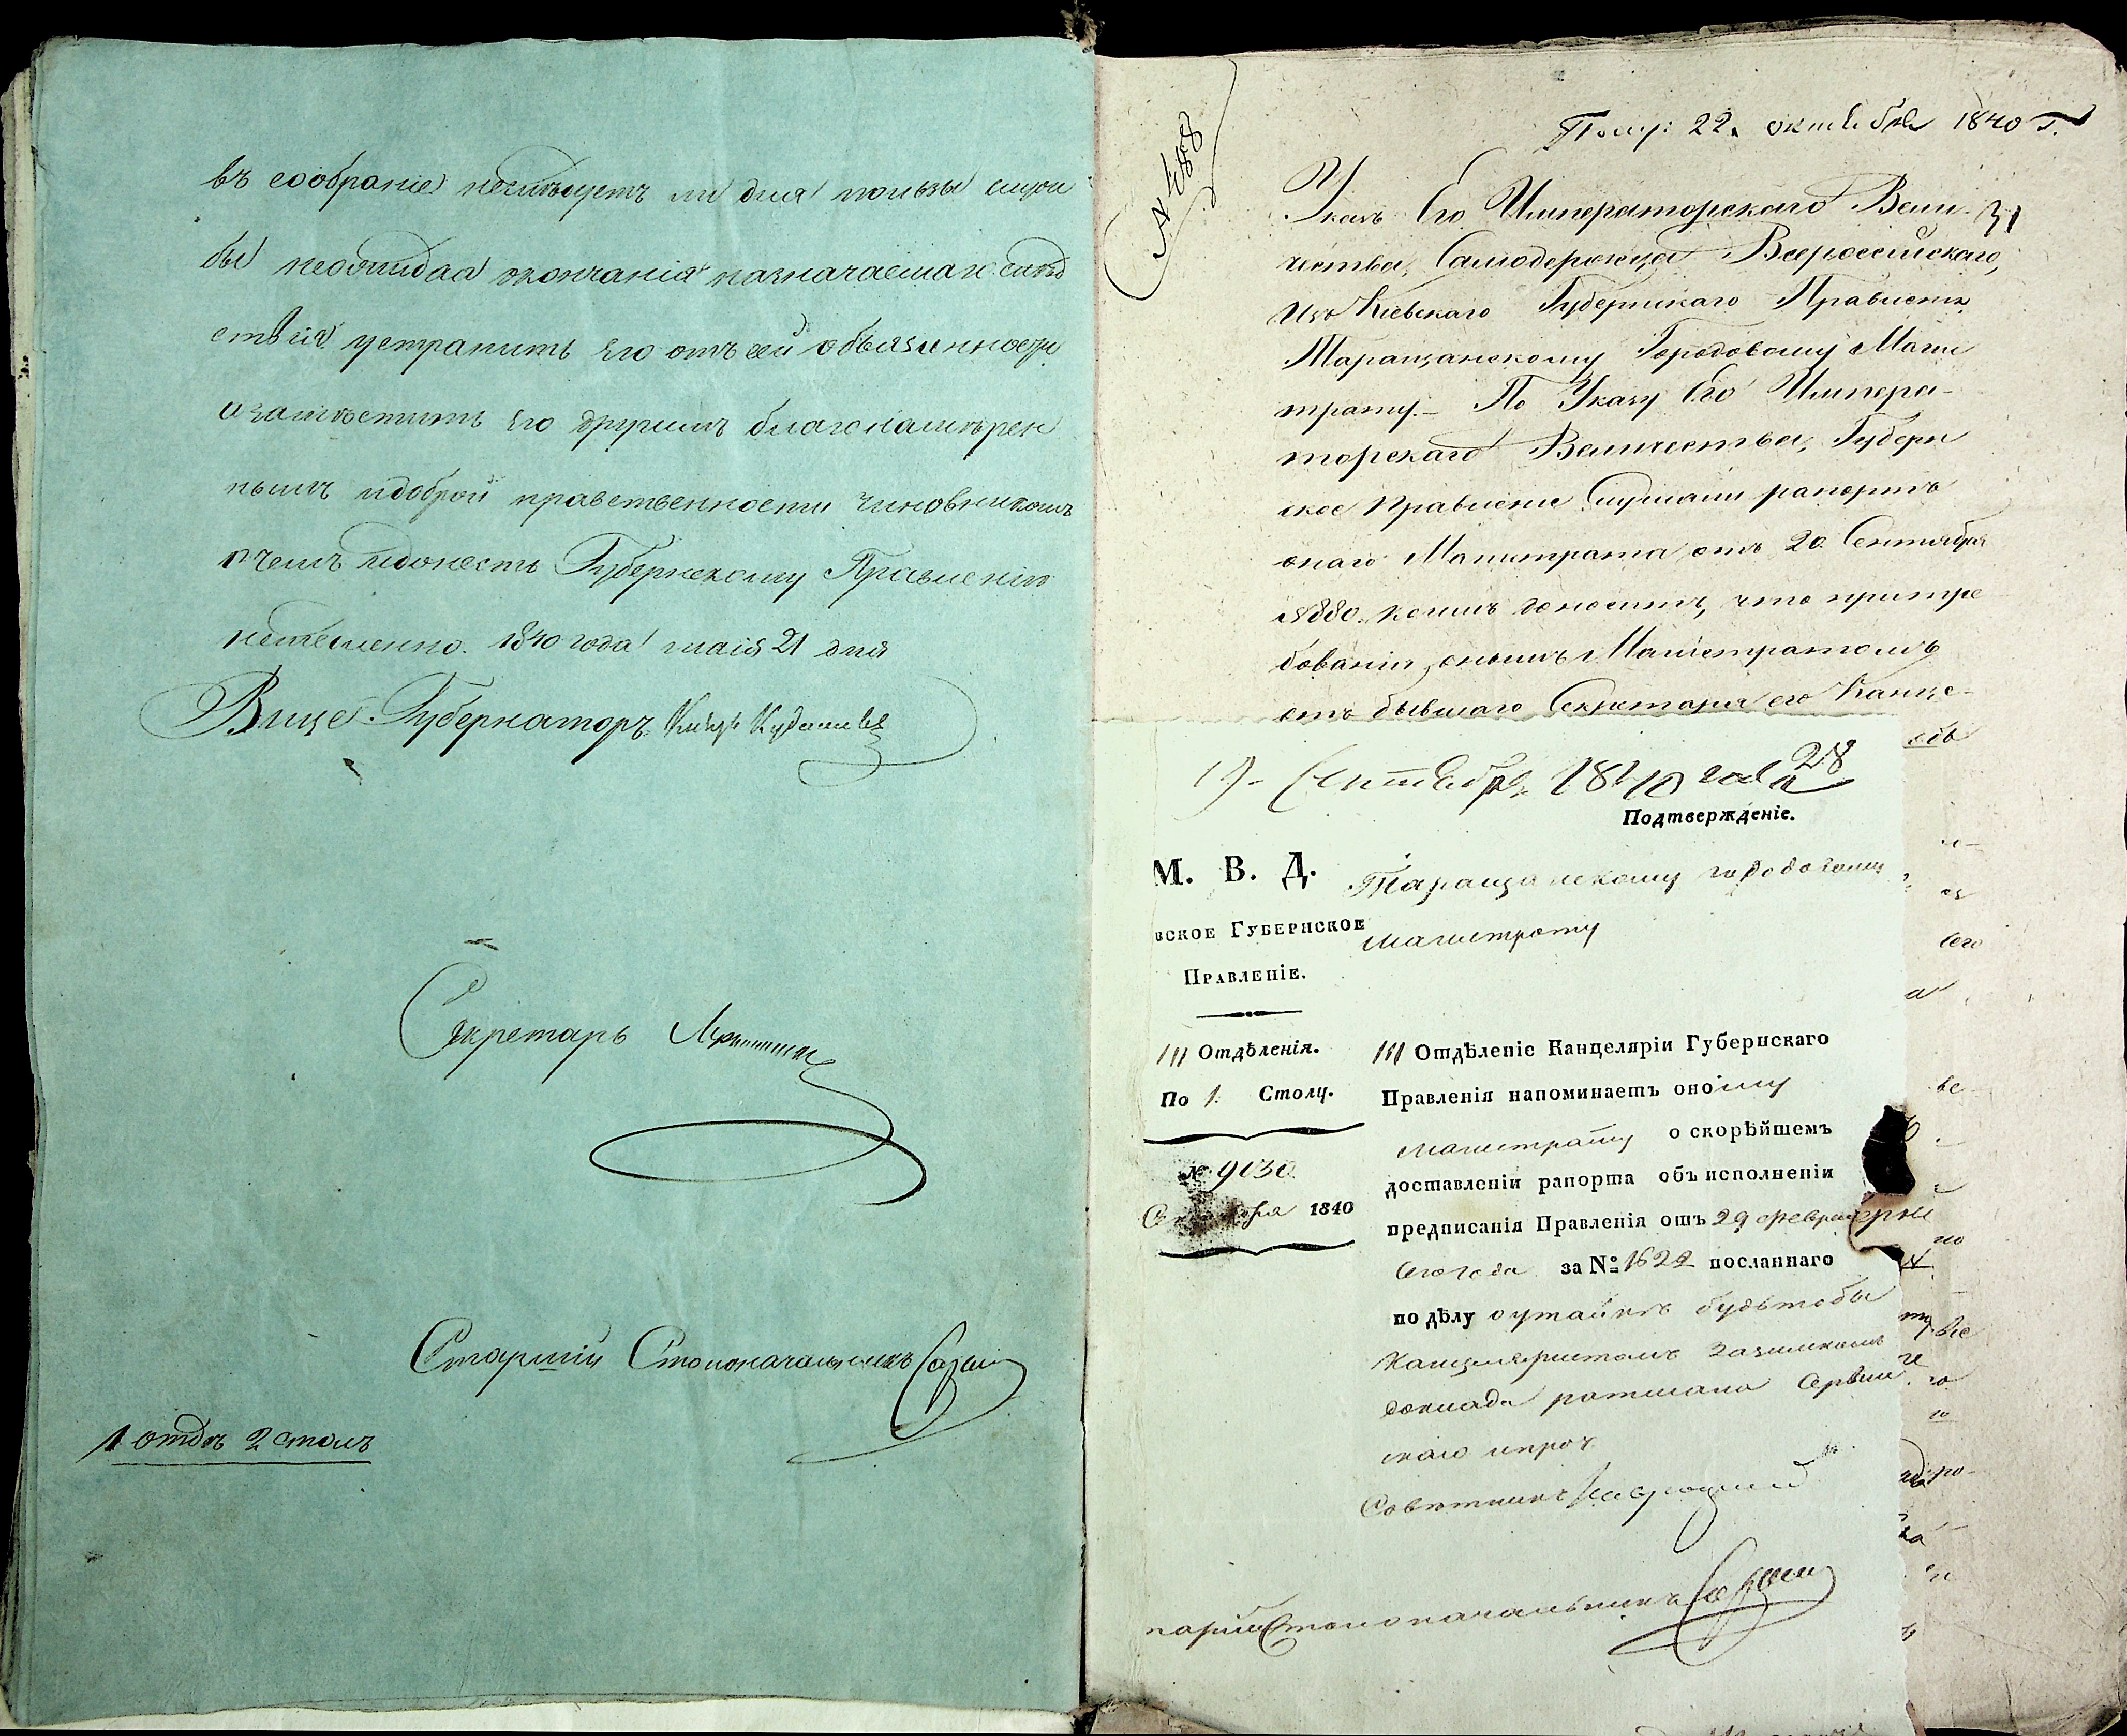 въ сообраніе неслѣдуетъ ли для пользы служ
бы неожидая окончанія назначаемаго слѣд
ствія устранить его отъ сей обязанности
изамѣстить его другимъ благонамѣрен
нымъ идоброй нравственности чиновникомъ
очемъ идонесть Губернскому Правленію
немедленно. 1840 года маія 21 дня
Вице-Губернаторъ Князь Кудашевъ
Секретарь
Старшій Столоначальникъ
1 отдѣ 2 столъ
Полу: 22. октября 1840 г.
№ 488
31
Указъ Его Императорскаго Вели-
чества, Самодержца Всероссійскаго,
Изъ Кіевскаго Губернскаго Правленія
Таращанскому Городовому Маги
страту. – По Указу Его Импера-
торскаго Величества, Губерн
ское Правленіе Слушали рапортъ
онаго Магистрата отъ 20. Сентября
№880. коимъ доноситъ, что при тре
бованіи онымъ Магистратомъ
отъ бывшаго Секретаря его Канце-
19- Сентября 1840 года
28
Подтвержденіе.
М. В. Д.
Таращанскому городовому
вское Губернское
магистрату
Правленіе.
III Отдѣленія.
III Отдѣленіе Канцеляріи Губернскаго
По 1. Столу.
Правленія напоминаетъ оному
магистрату о скорѣйшемъ
№ 9030
доставленіи рапорта объ исполненіи
1840
предписанія Правленія отъ 29 февраля
сего года за № 1622 посланнаго
по дѣлу о утайкѣ будьтобы
Канцеляристомъ
доклада ратмана
скаго ипроч
Совѣтникъ
Столоначальникъ